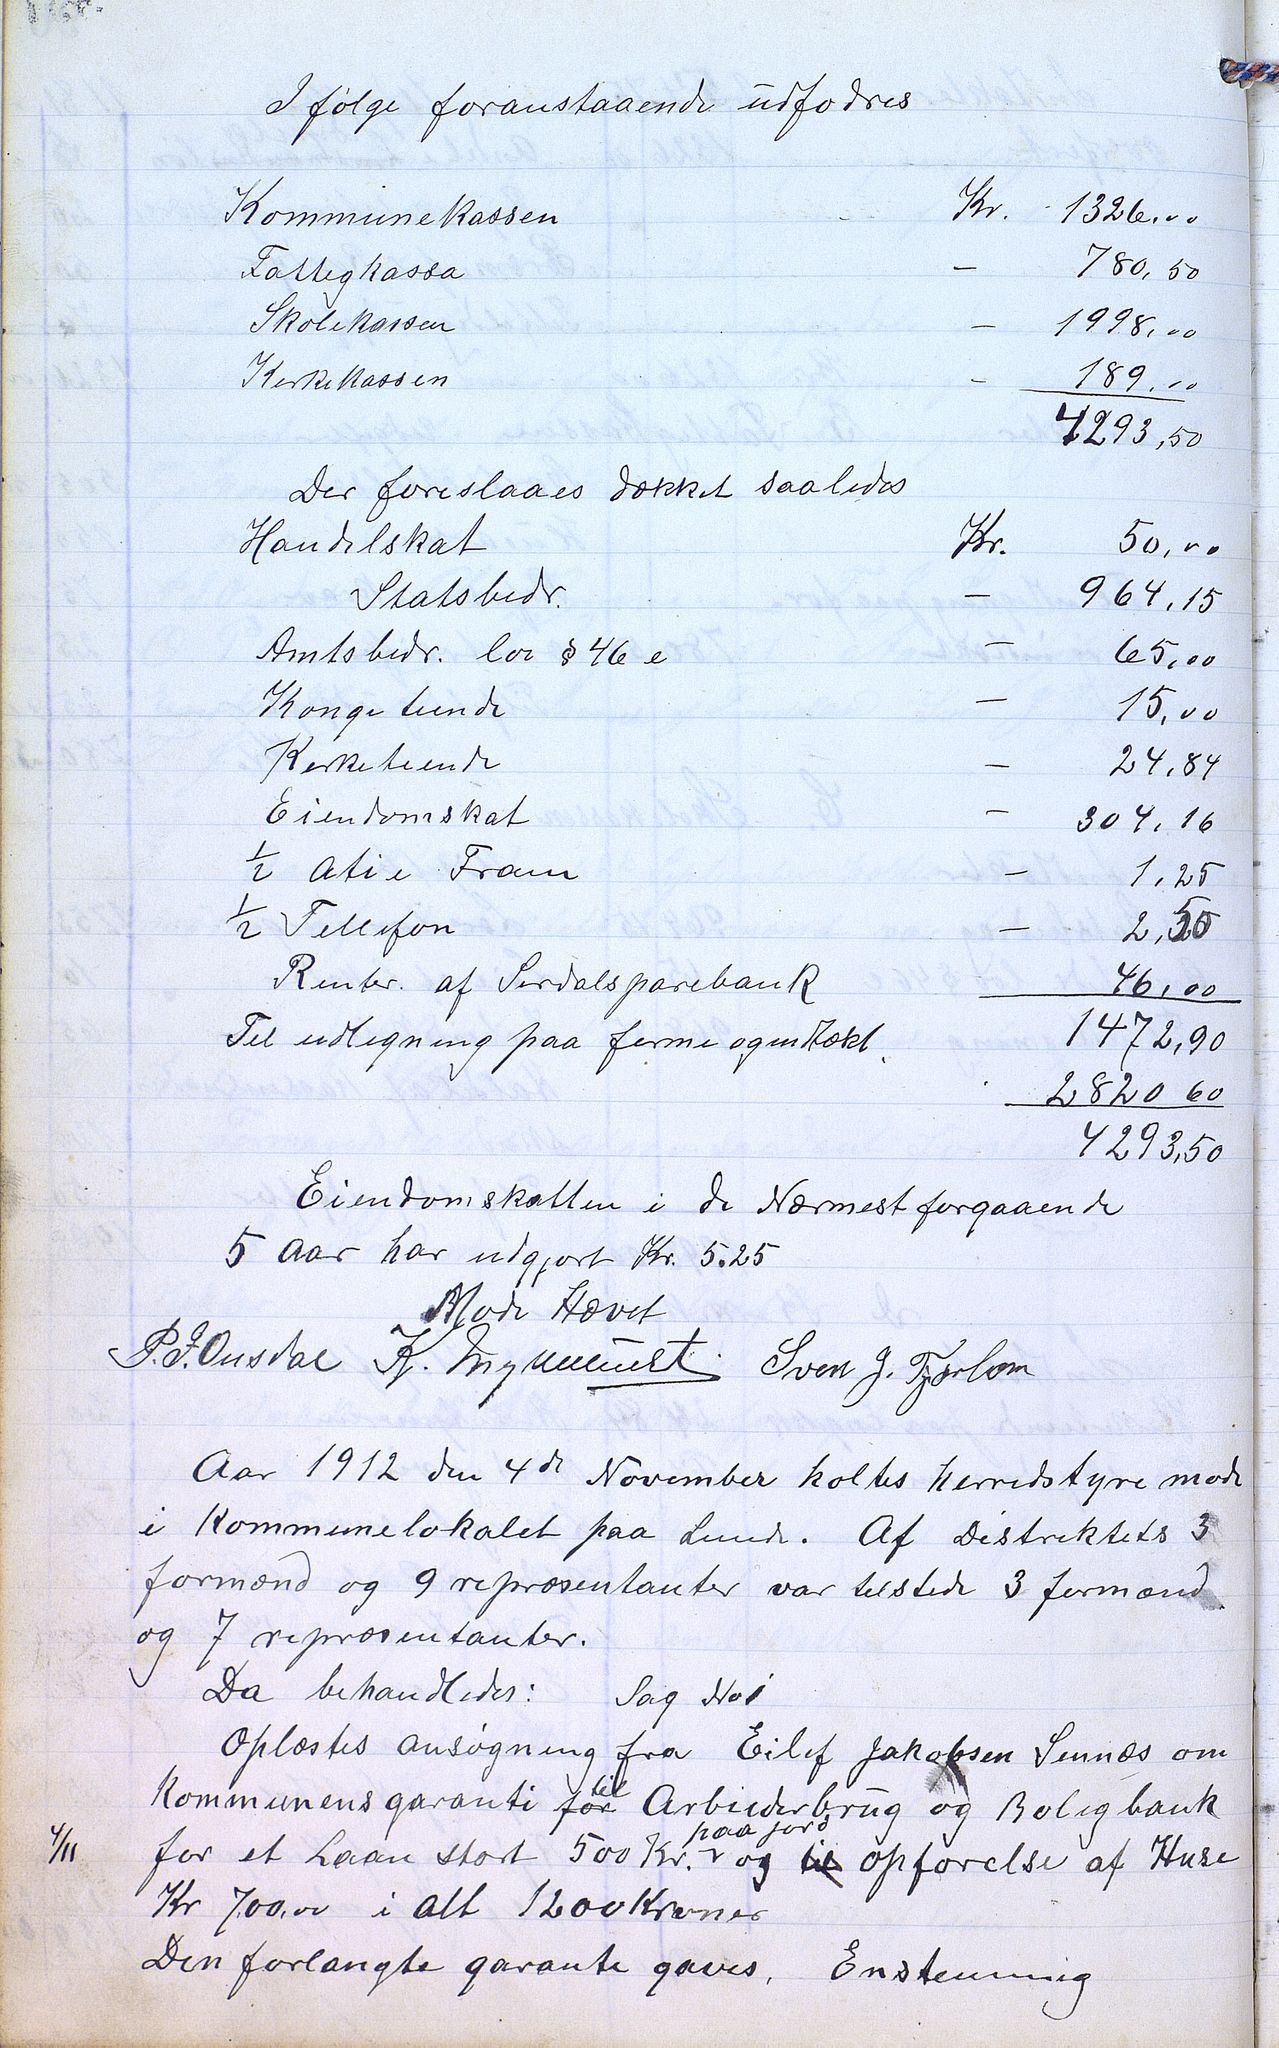 I følge foranstaaende udfodres
Kommunekassen Kr. 1326.00
Fattegkassa - 780,50
Skolekassen - 1998.00
Kerkekassen - 189.00
4293,50
Der foreslaaes dækket saaledes
Handelskat Kr. 50,00
Statsbedr. - 964,15
Amtsbedr. lov § 46 e - 65,00
Konge teende - 15,00
Kerketeende - 24,84
Eiendomskat - 304,16
1/2 Atie Fram - 1,25
1/2 Tellefon - 2,50
Renter. af Serdalsparebank 46,00
1472,90
Til udlegning paa formue og indtækt.
2820 60
4293,50
Eiendomskatten i de Nærmest forgaaende
5 Aar har udgjort Kr. 5.25
Møde Hævet
P. J. Ousdal K. Sven J. Tjørlom
Aar 1912 den 4de November holtes herredstyre møde
i Kommunelokalet paa Lunde. Af Distriktets 3
formænd og 9 repræsentanter var tilstede 3 formænd
og 7 repræsentanter.
Da behandledes: Sag No 1
Oplæstes ansøgning fra Eilef Jakobsen Sinnæs om
Kommunens garanti for til Arbeiderbrug og Boligbank
4/11 for et Laan stort 500 Kr. paa jord og til opførelse af Huse
Kr 700.00 i alt 1200 Kroner
Den forlangte garante gaves. Enstemmig